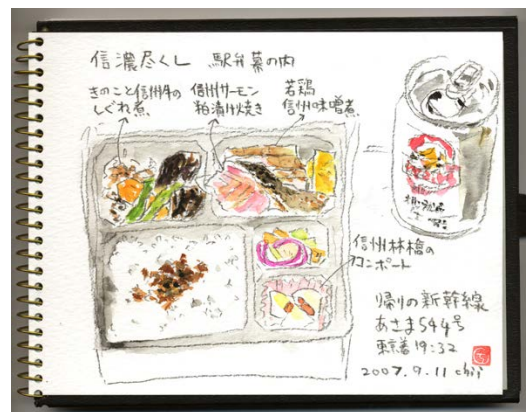 信濃尽くし 駅弁幕の内
きのこと信州牛の
しぐれ煮
信州サーモン
粕漬け焼き
若鶏
信州味噌煮
信州林檎の
コンポート
帰りの新幹線
あさま544号
東京着19:32
2007.9.11 chii